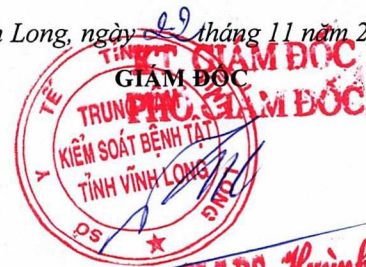 Long, ngày 29 tháng 11 năm 2
KT GIÁM ĐỐC
GIÁM ĐỐC
PHÓ GIÁM ĐỐC
SỞ Y TẾ TỈNH
LONG
TRUNG TÂM
KIỂM SOÁT BỆNH TẬT
TỈNH VĨNH LONG